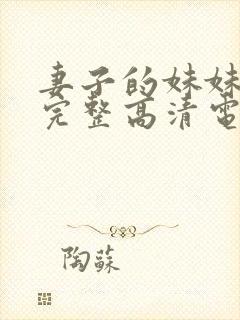 妻子的妹妹
完整高清電
陶蘇